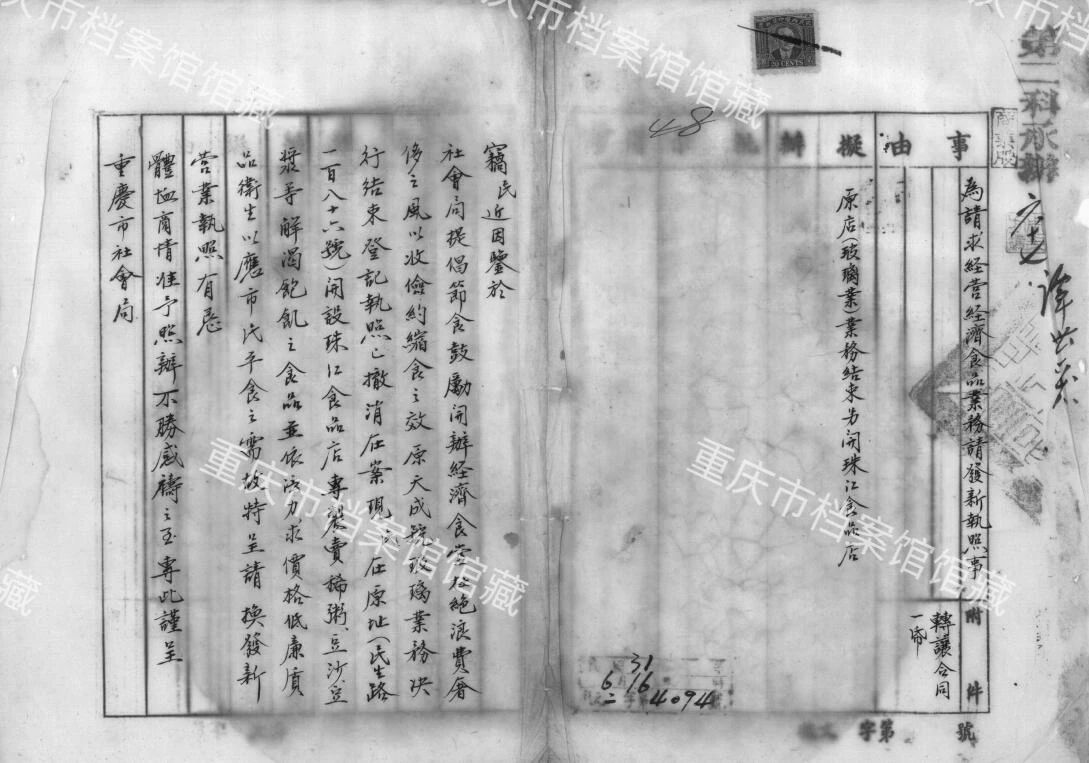 第二科承辦
商業股
20 CENTS
48
事由
擬辦
為請求経营経濟食品業務請發新執照事
附件
轉讓合同一帋
原店(玻璃業)業務結束另開珠江食品店
31
6 16
4094
字第
號
竊民近因鑒於
社會局提倡節食鼓勵開辦経濟食堂杜絕浪費奢
侈之風以收儉約縮食之效原天成號玻璃業務決
行結束登記執照已撤消在案現 在原址(民生路
二百八十六號)開設珠江食品店專製賣稀粥、豆沙、豆
漿等解渴飽飢之食品並依 力求價格低廉質
品衛生以應市民平食之需故特呈請 換發新
营業執照有忌
體恤商情准予照辦不勝感禱之至專此謹呈
重慶市社會局
重庆市档案馆馆藏
重庆市档案馆馆藏
重庆市档案馆馆藏
重庆市档案馆馆藏